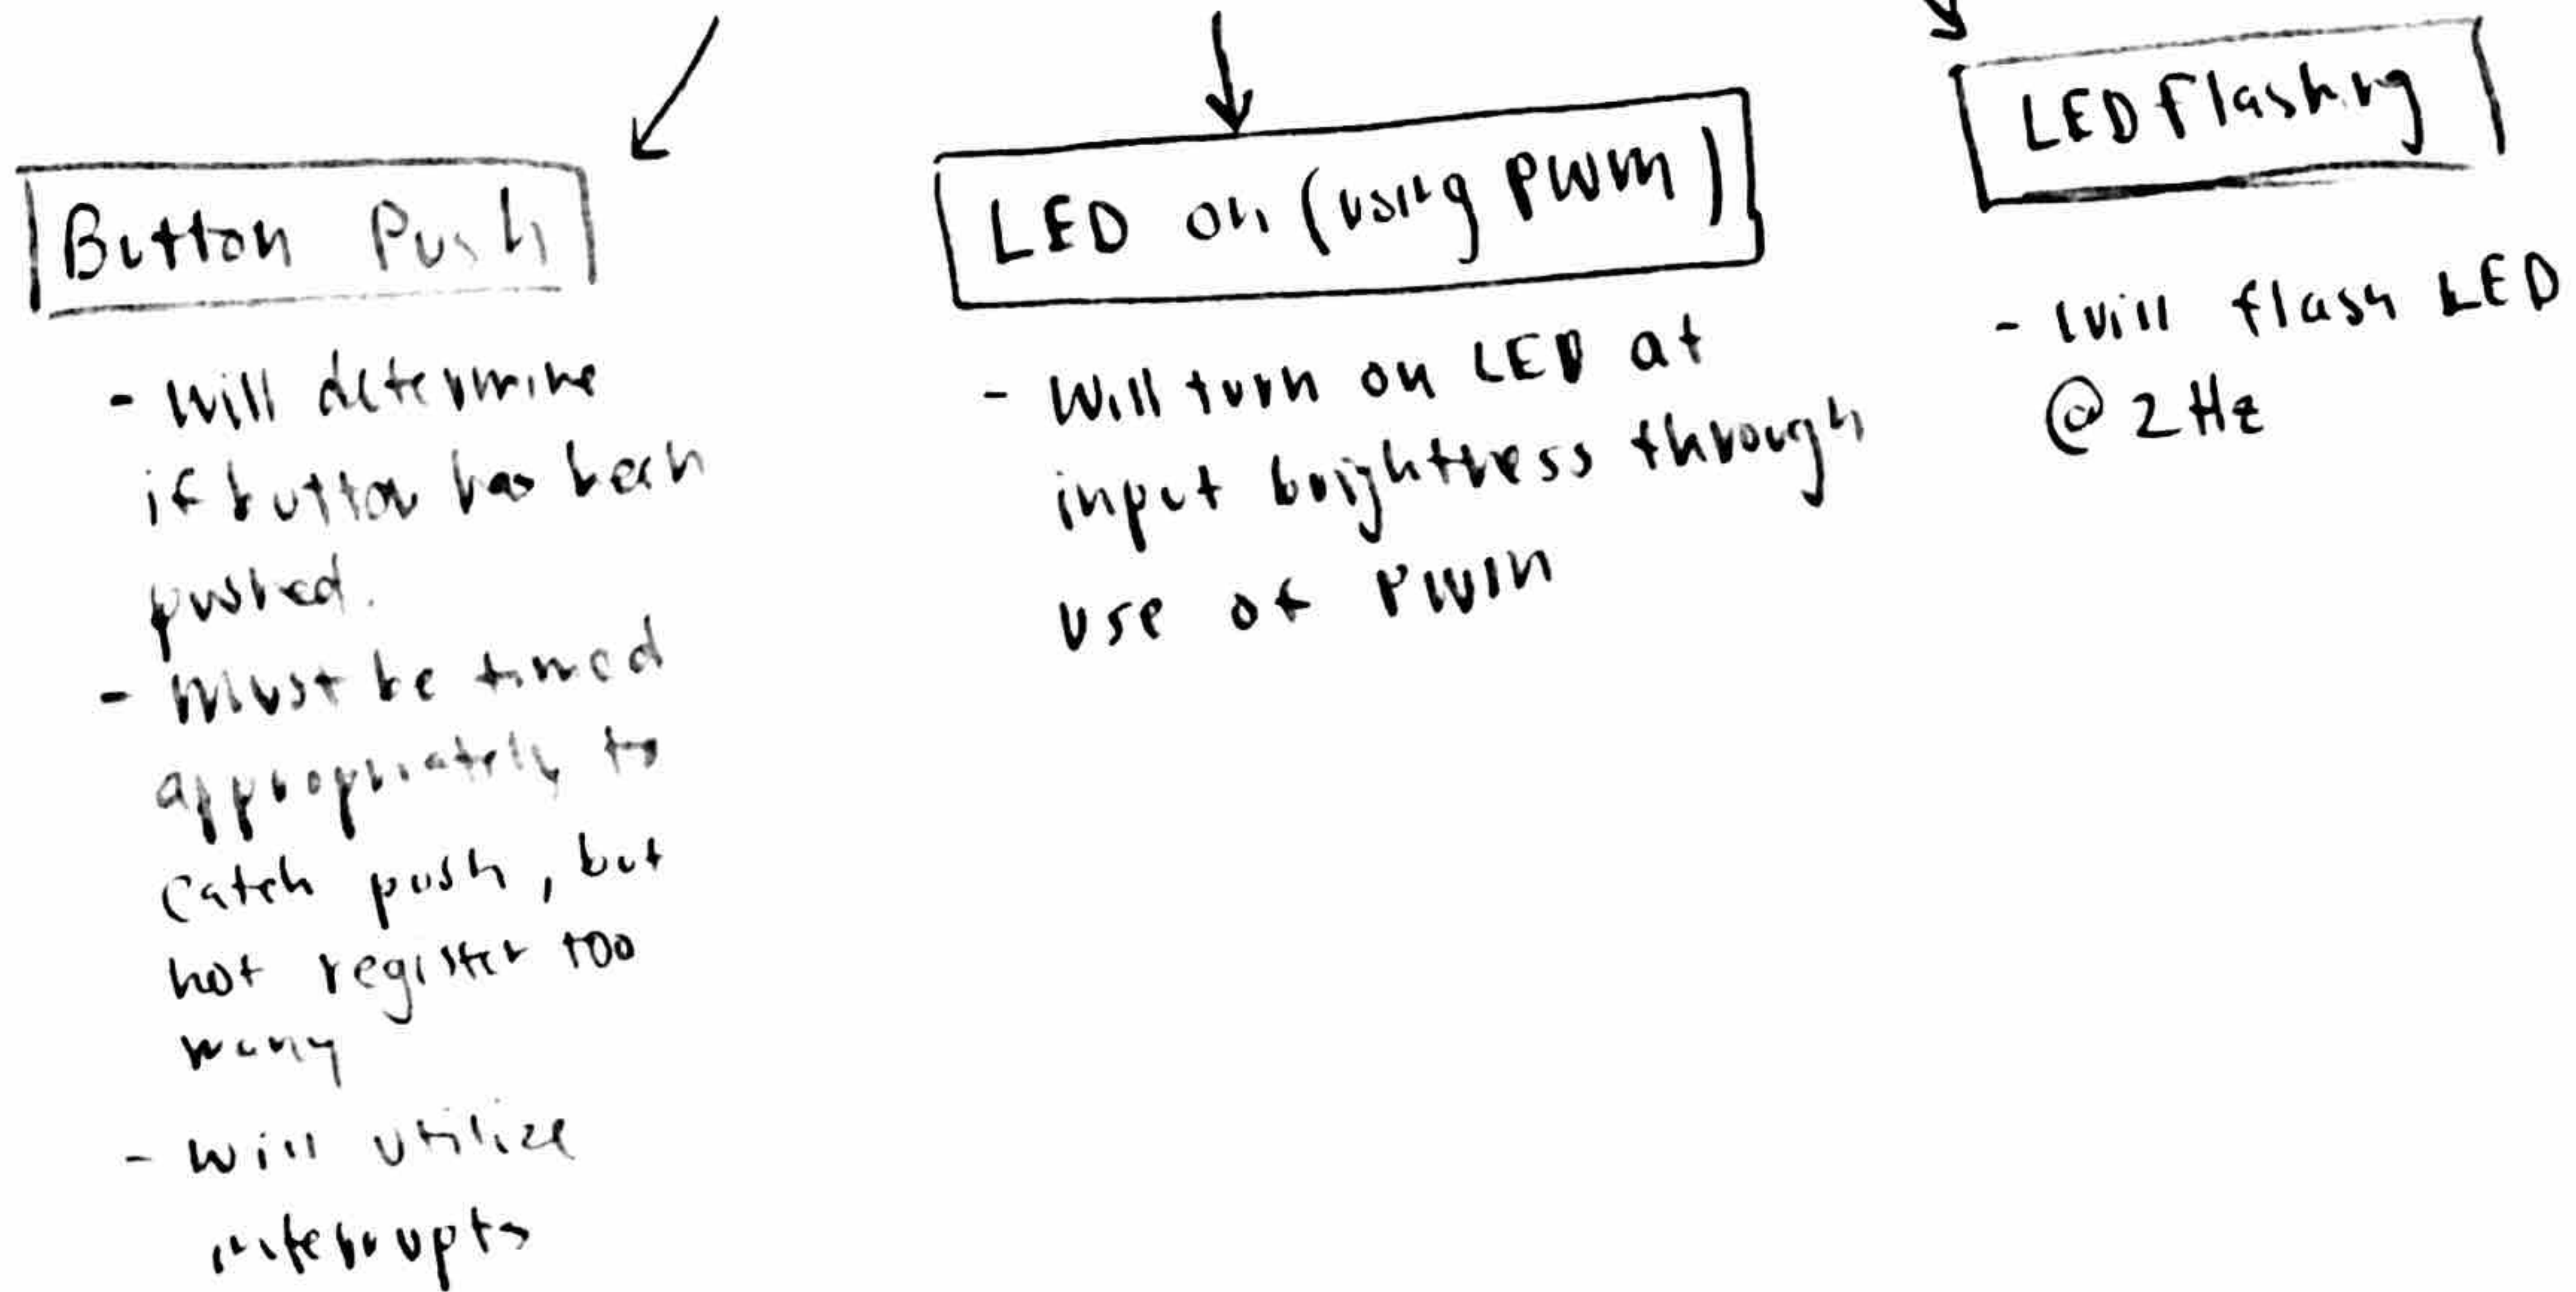 Button Push
- Will determine
if button has been
pushed.
- Must be timed
appropriately to
catch push, but
not register too
many
- Will utilize
interrupts
LED on (using PWM)
- Will turn on LED at
input brightness through
use of PWM
LED Flashing
- Will flash LED
@ 2 Hz